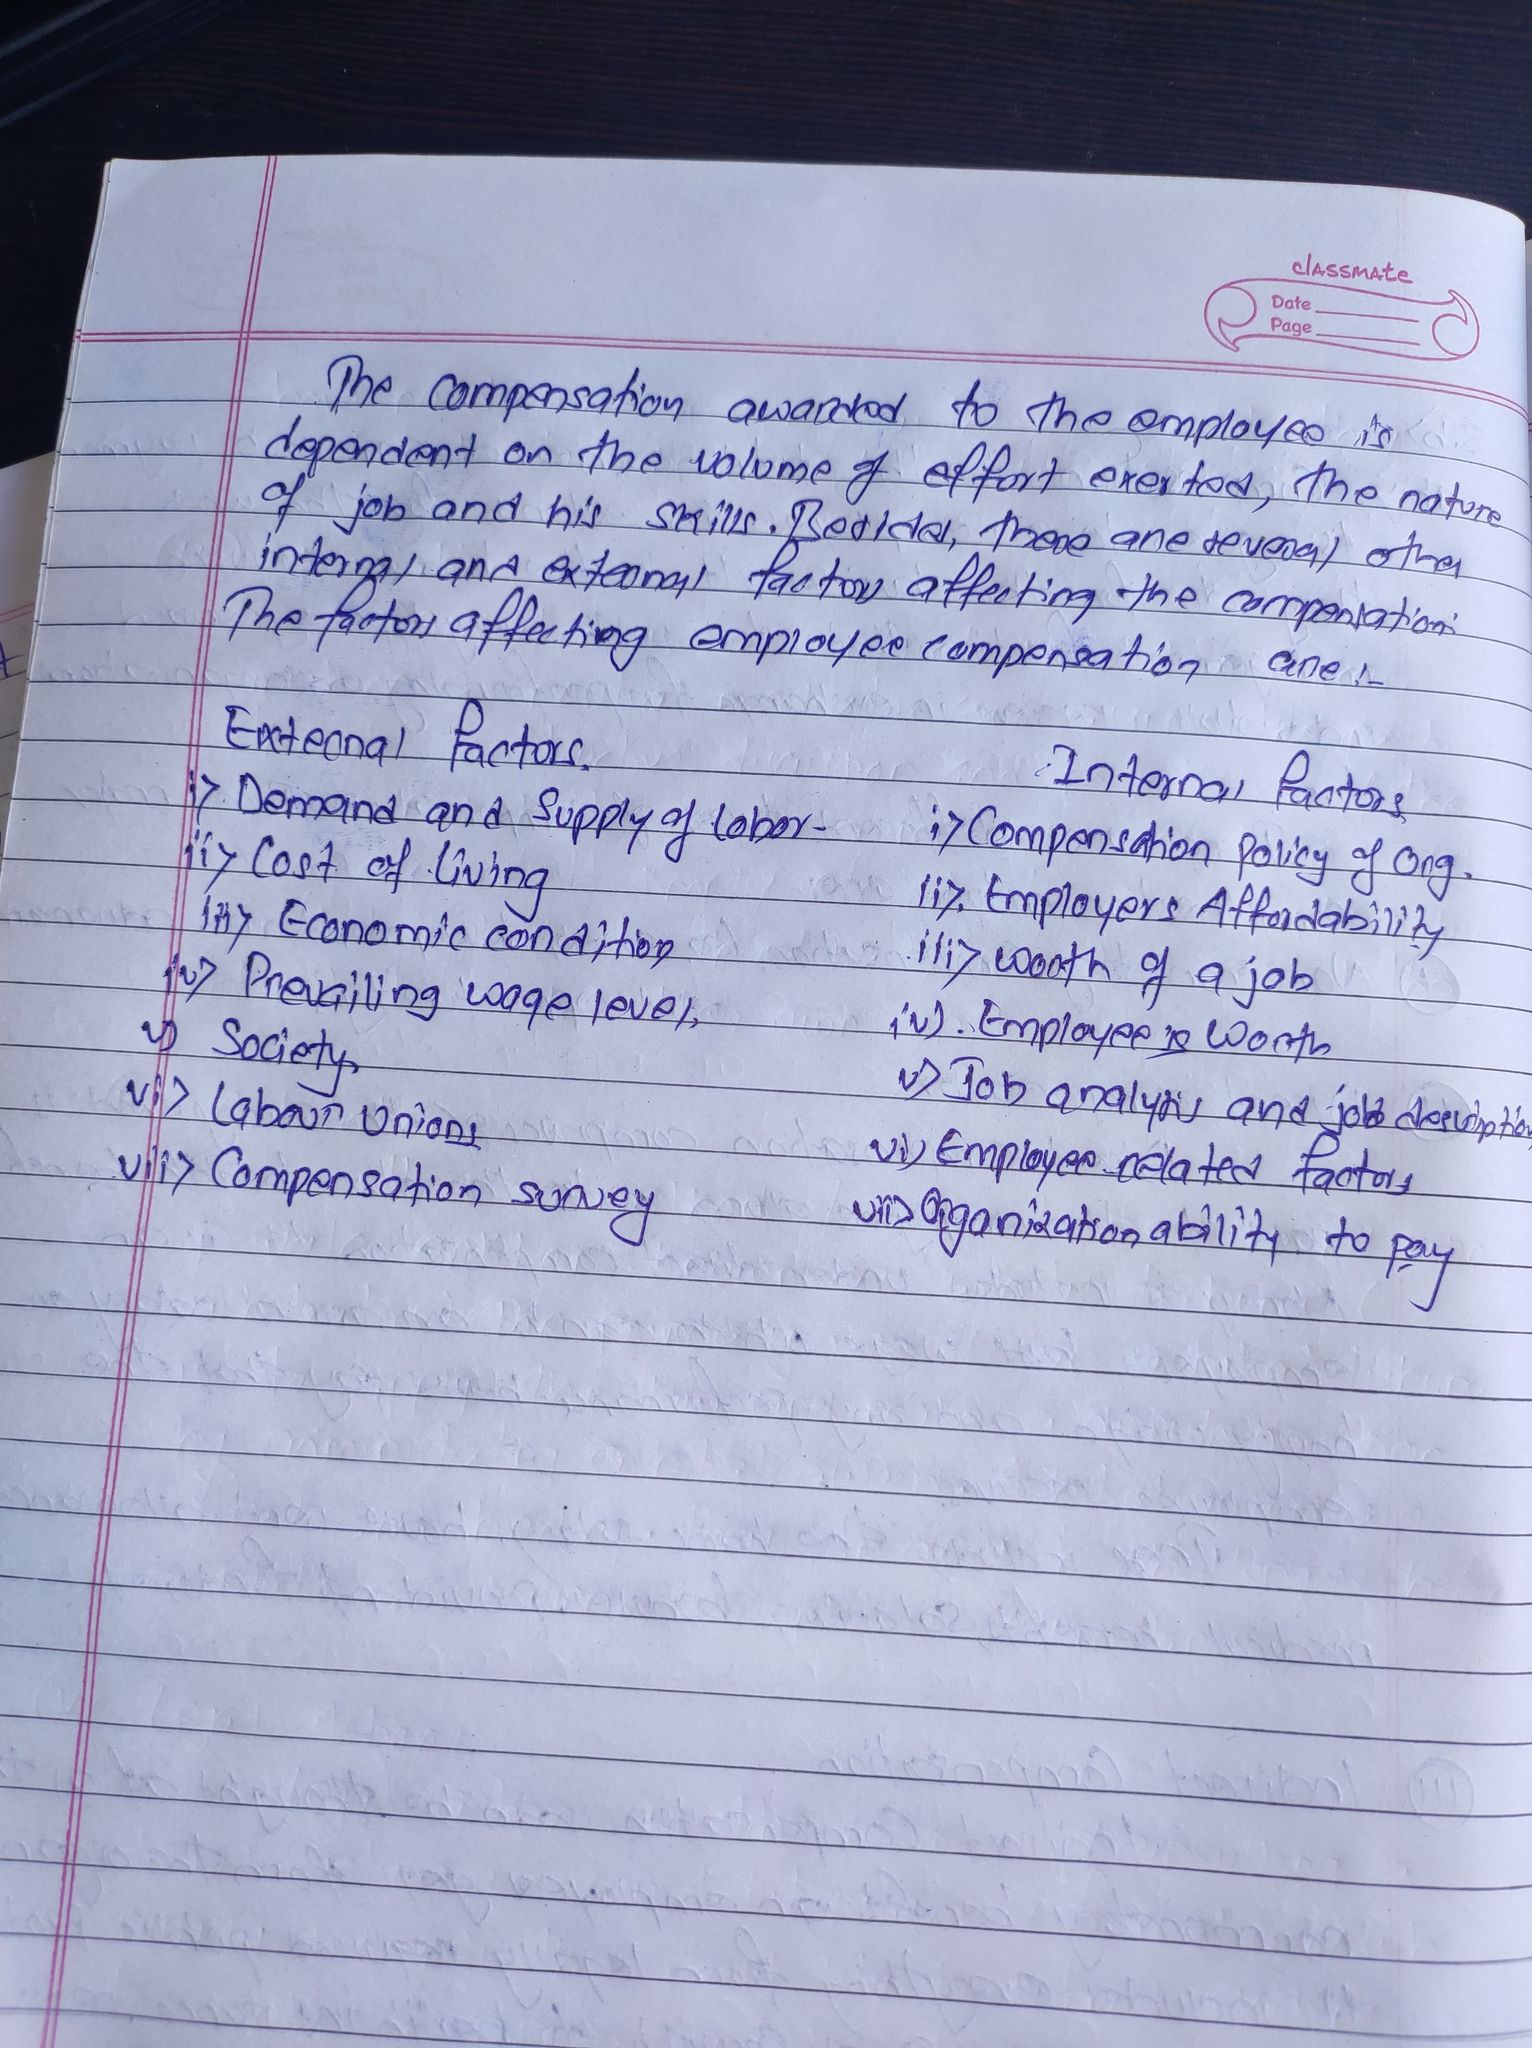 classmate
Date
Page
The compensation awarded to the employee is
dependent on the volume of effort exerted, the nature
of job and his skills. Besides, there are several other
internal and external factors affecting the compensation.
The factors affecting employee compensation are :-
External factors.
i> Demand and supply of labor-
ii> Cost of living
iii> Economic condition
iv> Prevailing wage level.
v) Society.
vi> Labour Unions
vii> Compensation survey
Internal factors
i> Compensation policy of org.
ii>. Employers Affordability
iii> Worth of a job
iv). Employee is Worth
v> Job analysis and job description
vi) Employee related factors
vii> Organization ability to pay